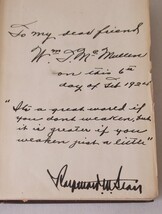 To my dear friend
Wm J. McMullen
on this 6th
day of Feb 1924
"Its a great world if
you dont weaken, but
it is greater if you
weaken just a little"
Raymond M.